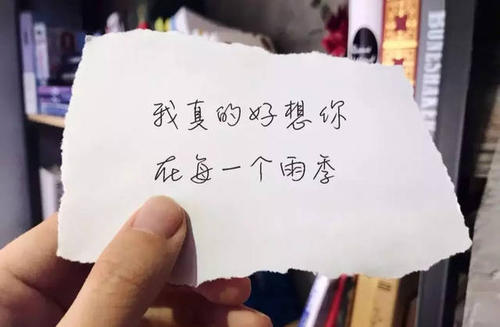 我真的好想你
在每一个雨季